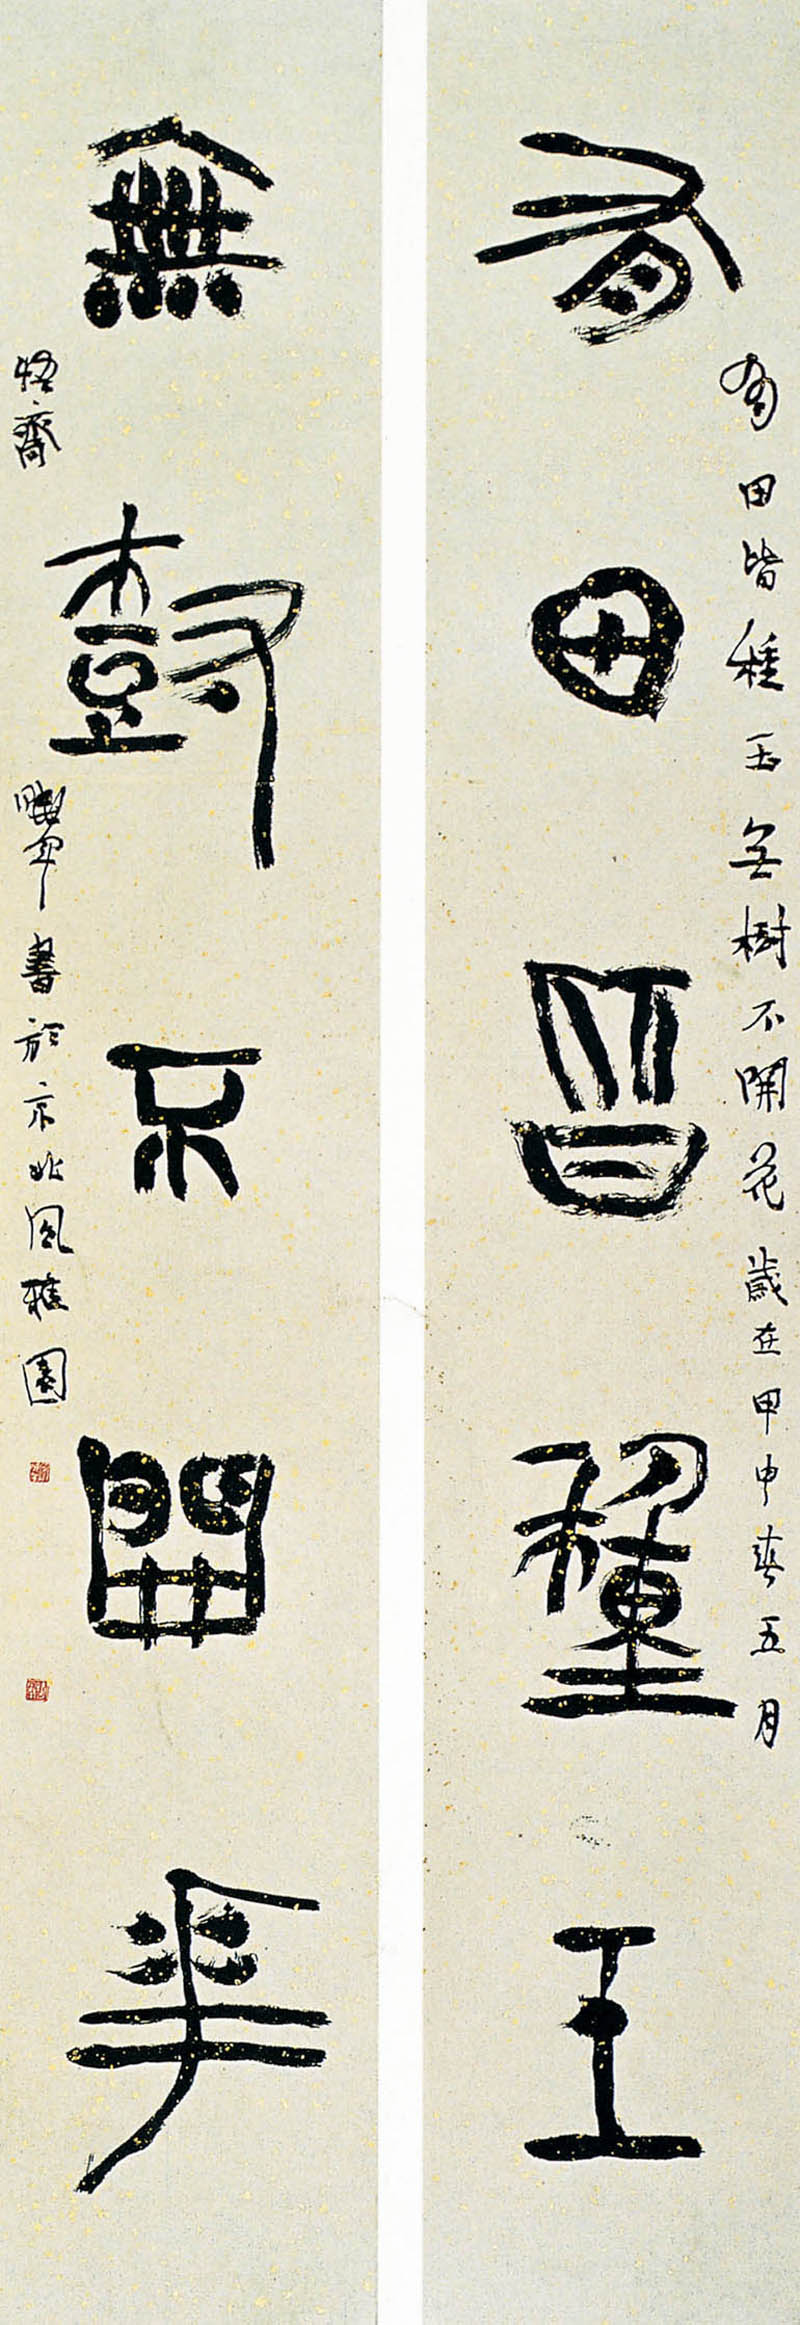 有田皆種玉
有田皆種玉無樹不開花歲在甲申春五月
無樹不開華
悟齋
書於京北風雅園